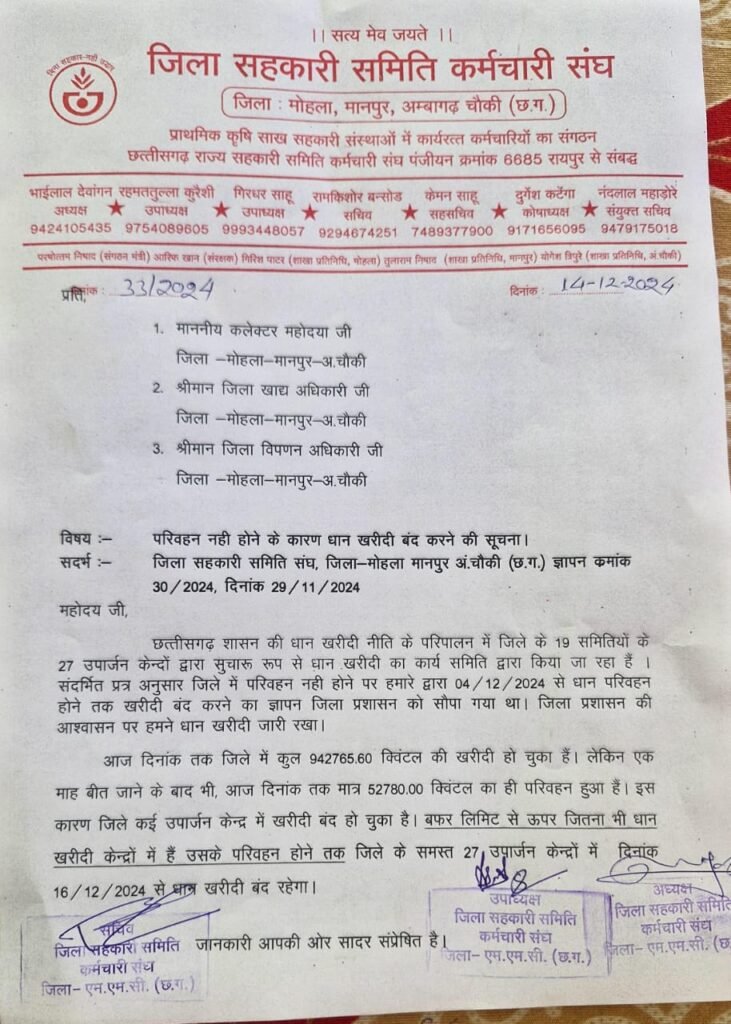 ।। सत्य मेव जयते ।।
जिला सहकारी समिति कर्मचारी संघ
जिला : मोहला, मानपुर, अम्बागढ़ चौकी (छ.ग.)
प्राथमिक कृषि साख सहकारी संस्थाओं में कार्यरत्त कर्मचारियों का संगठन
छत्तीसगढ़ राज्य सहकारी समिति कर्मचारी संघ पंजीयन क्रमांक 6685 रायपुर से संबद्ध
भाईलाल देवांगन रहमततुल्ला कुरैशी गिरधर साहू रामकिशोर बन्सोड केमन साहू दुर्गेश कटेंगा नंदलाल महाडोरे
अध्यक्ष ★ उपाध्यक्ष ★ उपाध्यक्ष ★ सचिव ★ सहसचिव ★ कोषाध्यक्ष ★ संयुक्त सचिव
9424105435 9754089605 9993448057 9294674251 7489377900 9171656095 9479175018
परषोत्तम निषाद (संगठन मंत्री) आरिफ खान (संरक्षक) गिरिश पाटर (शाखा प्रतिनिधि, मोहला) तुलाराम निषाद (शाखा प्रतिनिधि, मानपुर) योगेश त्रिपुरे (शाखा प्रतिनिधि, अं.चौकी)
प्रति, 33/2024 दिनांक : 14-12-2024
1. माननीय कलेक्टर महोदया जी
जिला –मोहला–मानपुर–अ.चौकी
2. श्रीमान जिला खाद्य अधिकारी जी
जिला –मोहला–मानपुर–अ.चौकी
3. श्रीमान जिला विपणन अधिकारी जी
जिला –मोहला–मानपुर–अ.चौकी
विषय :– परिवहन नही होने के कारण धान खरीदी बंद करने की सूचना।
सदर्भ :– जिला सहकारी समिति संघ, जिला–मोहला मानपुर अं.चौकी (छ.ग.) ज्ञापन कमांक
30/2024, दिनांक 29/11/2024
महोदय जी,
छत्तीसगढ़ शासन की धान खरीदी नीति के परिपालन में जिले के 19 समितियों के
27 उपार्जन केन्दों द्वारा सुचारू रूप से धान खरीदी का कार्य समिति द्वारा किया जा रहा हैं ।
संदर्भित प्रत्र अनुसार जिले में परिवहन नही होने पर हमारे द्वारा 04/12/2024 से धान परिवहन
होने तक खरीदी बंद करने का ज्ञापन जिला प्रशासन को सोपा गया था। जिला प्रशासन की
आश्वासन पर हमने धान खरीदी जारी रखा।
आज दिनांक तक जिले में कुल 942765.60 क्विंटल की खरीदी हो चुका हैं। लेकिन एक
माह बीत जाने के बाद भी, आज दिनांक तक मात्र 52780.00 क्विंटल का ही परिवहन हुआ हैं। इस
कारण जिले कई उपार्जन केन्द्र में खरीदी बंद हो चुका है। बफर लिमिट से ऊपर जितना भी धान
खरीदी केन्द्रों में हैं उसके परिवहन होने तक जिले के समस्त 27 उपार्जन केन्दों में दिनांक
16/12/2024 से धान खरीदी बंद रहेगा।
जानकारी आपकी ओर सादर संप्रेषित है।
सचिव
जिला सहकारी समिति
कर्मचारी संघ
जिला– एम.एम.सी. (छ.ग.)
उपाध्यक्ष
जिला सहकारी समिति
कर्मचारी संघ
जिला– एम.एम.सी. (छ.ग.)
अध्यक्ष
जिला सहकारी समिति
कर्मचारी संघ
जिला– एम.एम.सी. (छ.